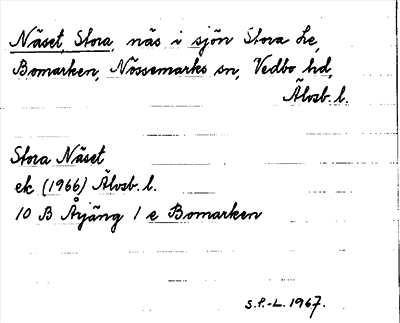 Näset, Stora, näs i sjön Stora Le,
Bomarken, Nössemarks sn, Vedbo hd,
Älvsb. l.
Stora Näset
ek (1966) Älvsb. l.
10 B Årjäng 1 e Bomarken
S.P.-L. 1967.